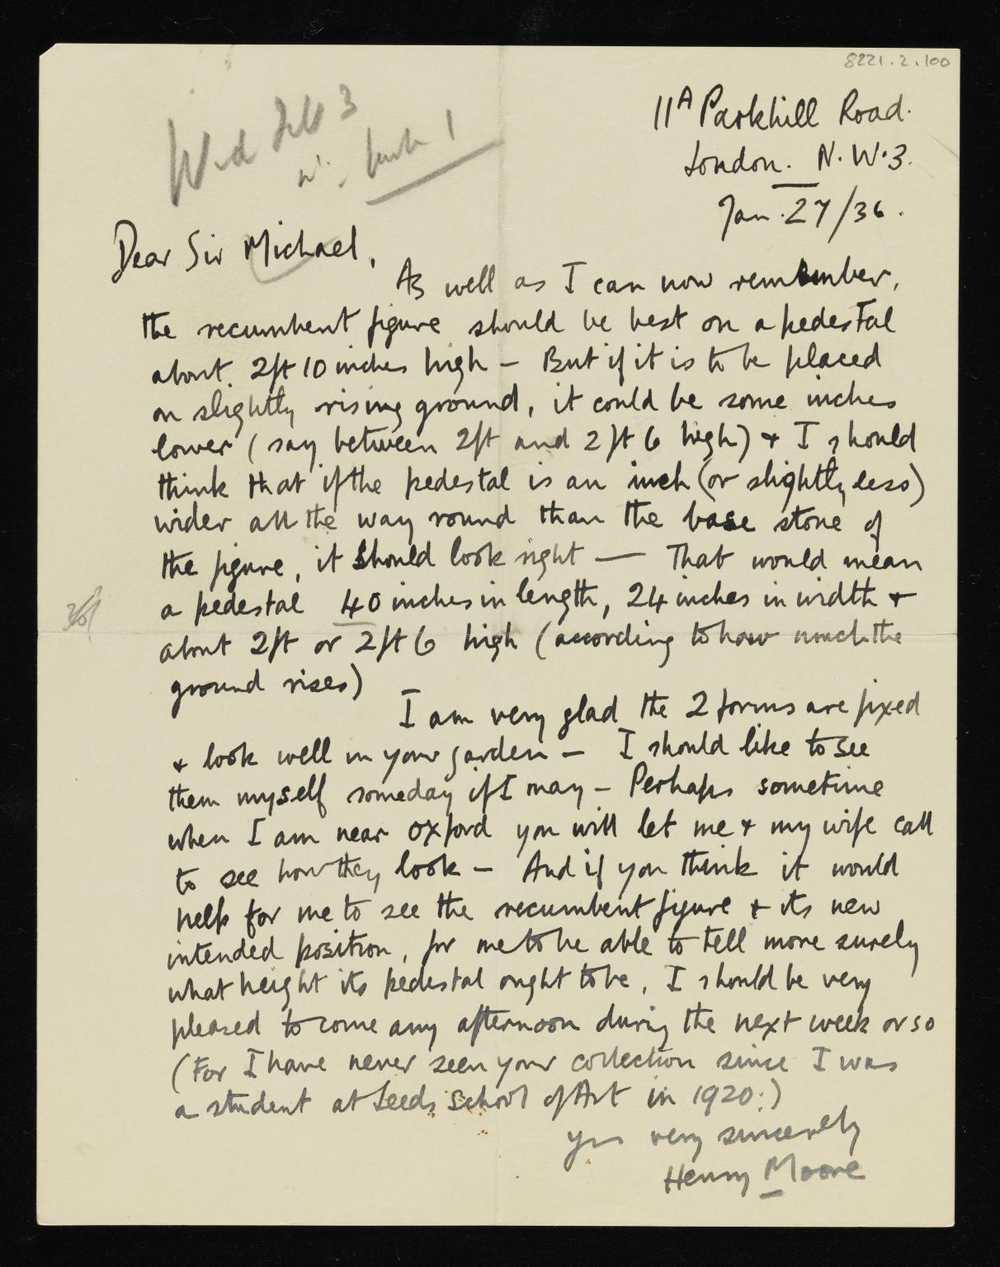 8221.2.100
11A Parkhill Road.
London. N.W.3.
Jan. 27/36.
Wed Feb 3
lunch 1
Dear Sir Michael,
As well as I can now remember,
the recumbent figure should be best on a pedestal
about 2ft 10 inches high – But if it is to be placed
on slightly rising ground, it could be some inches
lower (say between 2ft and 2ft 6 high) + I should
think that if the pedestal is an inch (or slightly less)
wider all the way round than the base stone of
the figure, it should look right — That would mean
a pedestal 40 inches in length, 24 inches in width +
about 2ft or 2ft 6 high (according to how much the
ground rises)
I am very glad the 2 forms are fixed
+ look well in your garden – I should like to see
them myself someday if I may – Perhaps sometime
when I am near Oxford you will let me + my wife call
to see how they look – And if you think it would
help for me to see the recumbent figure + its new
intended position, for me to be able to tell more surely
what height its pedestal ought to be, I should be very
pleased to come any afternoon during the next week or so
(For I have never seen your collection since I was
a student at Leeds School of Art in 1920.)
Yrs very sincerely
Henry Moore